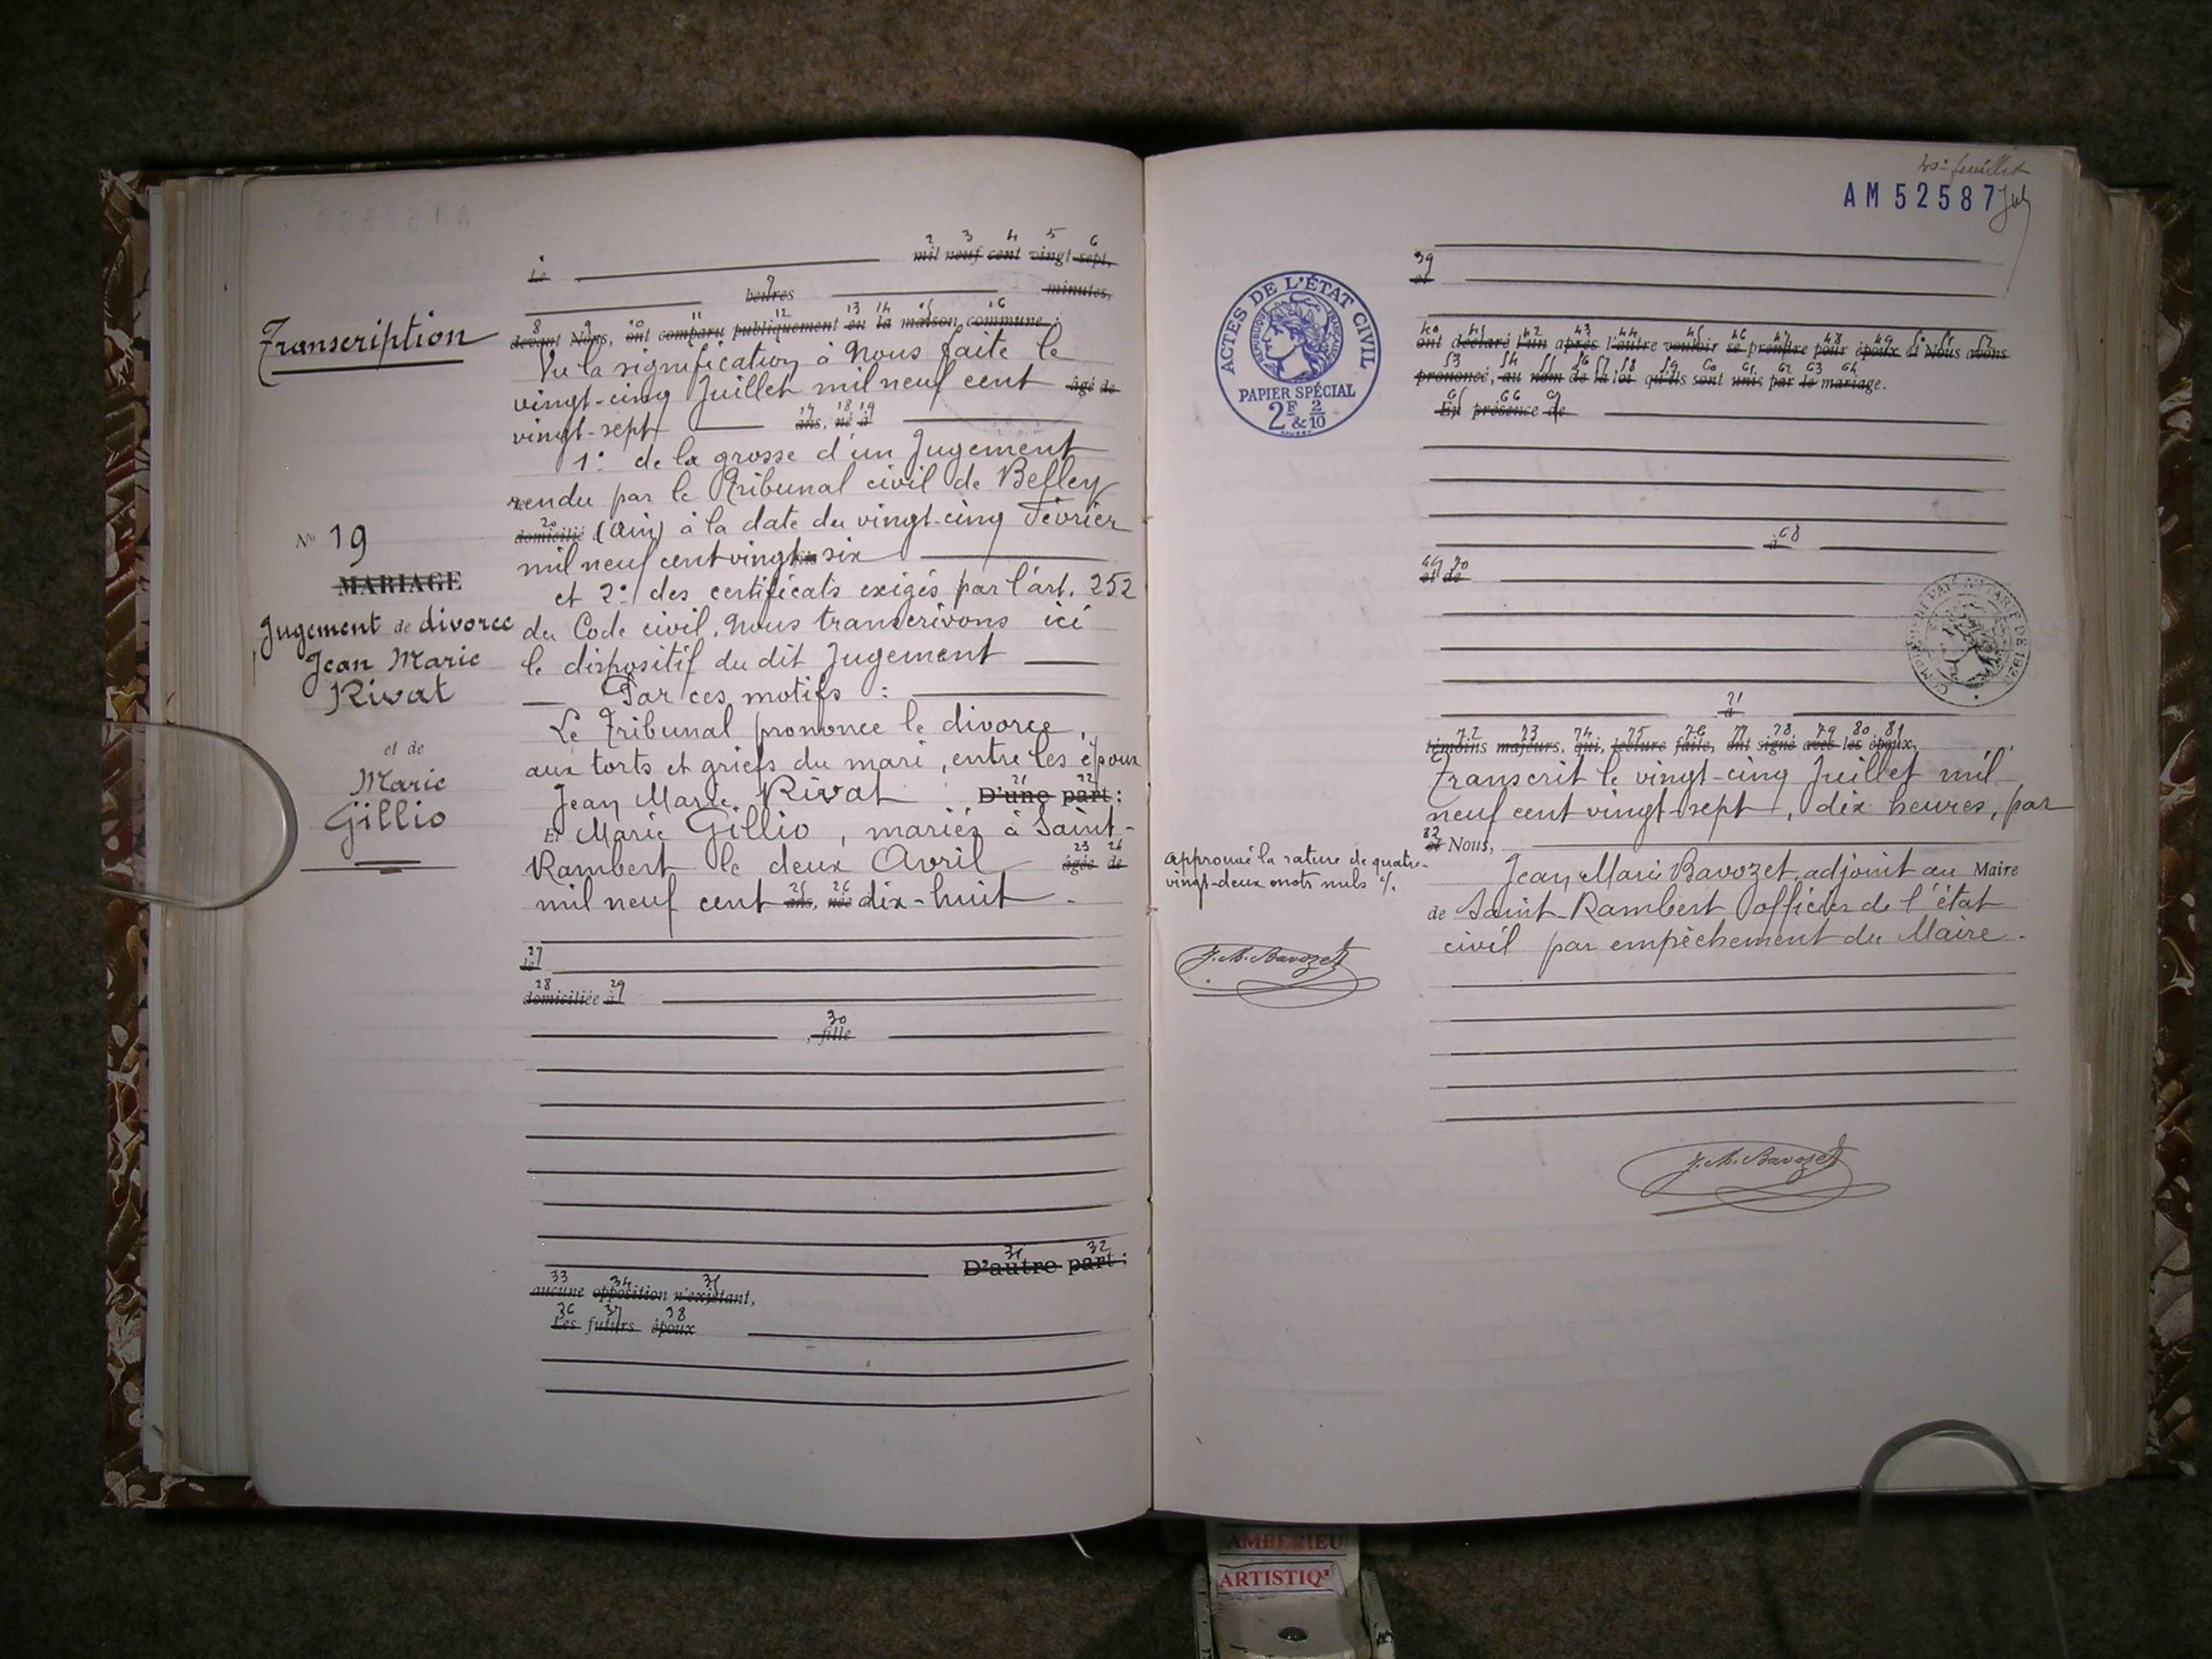 Transcription
N° 19
MARIAGE
Jugement de divorce
Jean Marie
Rivat
et de
Marie
Gillio
2 3 4 5 6
Le mil neuf cent vingt sept,
7
heures minutes,
8 9 10 11 12 13 14 15 16
devant Nous, ont comparu publiquement en la maison commune :
Vu la signification à Nous faite le
vingt-cinq Juillet mil neuf cent âgé de
17 18 19
vingt-sept ans, né à
1° de la grosse d'un Jugement
rendu par le Tribunal civil de Belley
20
domicilié (Ain) à la date du vingt-cinq Février
mil neuf cent vingt six
et 2° des certificats exigés par l'art. 252
du Code civil. Nous transcrivons ici
le dispositif du dit Jugement
Par ces motifs :
Le Tribunal prononce le divorce,
aux torts et griefs du mari, entre les époux
21 22
Jean Marie Rivat D'une part :
Et Marie Gillio, mariés à Saint-
23 24
Rambert le deux Avril âgée de
25 26
mil neuf cent ans, née dix-huit.
27
le
28 29
domiciliée à
30
, fille
31 32
D'autre part :
33 34 35
aucune opposition n'existant,
36 37 38
Les futurs époux
40e feuillet
AM 52587
ACTES DE L'ÉTAT CIVIL
RÉPUBLIQUE FRANÇAISE
PAPIER SPÉCIAL
2F & 2/10
39
et
40 41 42 43 44 45 46 47 48 49 50 51 52
ont déclaré l'un après l'autre vouloir se prendre pour époux et Nous avons
53 54 55 56 57 58 59 60 61 62 63 64
prononcé, au nom de la loi qu'ils sont unis par le mariage.
65 66 67
En présence de
68
à
69 70
et de
71
à
72 73 74 75 76 77 78 79 80 81
témoins majeurs, qui, lecture faite, ont signé avec les époux,
Transcrit le vingt-cinq Juillet mil
neuf cent vingt-sept, dix heures, par
82
et Nous,
Jean Marie Bavozet, adjoint au Maire
de Saint-Rambert officier de l'état
civil par empêchement du Maire.
approuvé la rature de quatre-
vingt-deux mots nuls
J.M. Bavozet
J.M. Bavozet
AMBERIEU
ARTISTIQ